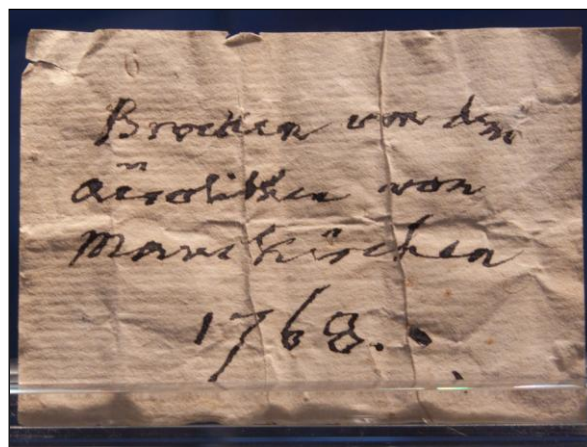 Brocken von dem
Aërolithen von
Maurkirchen
1768.